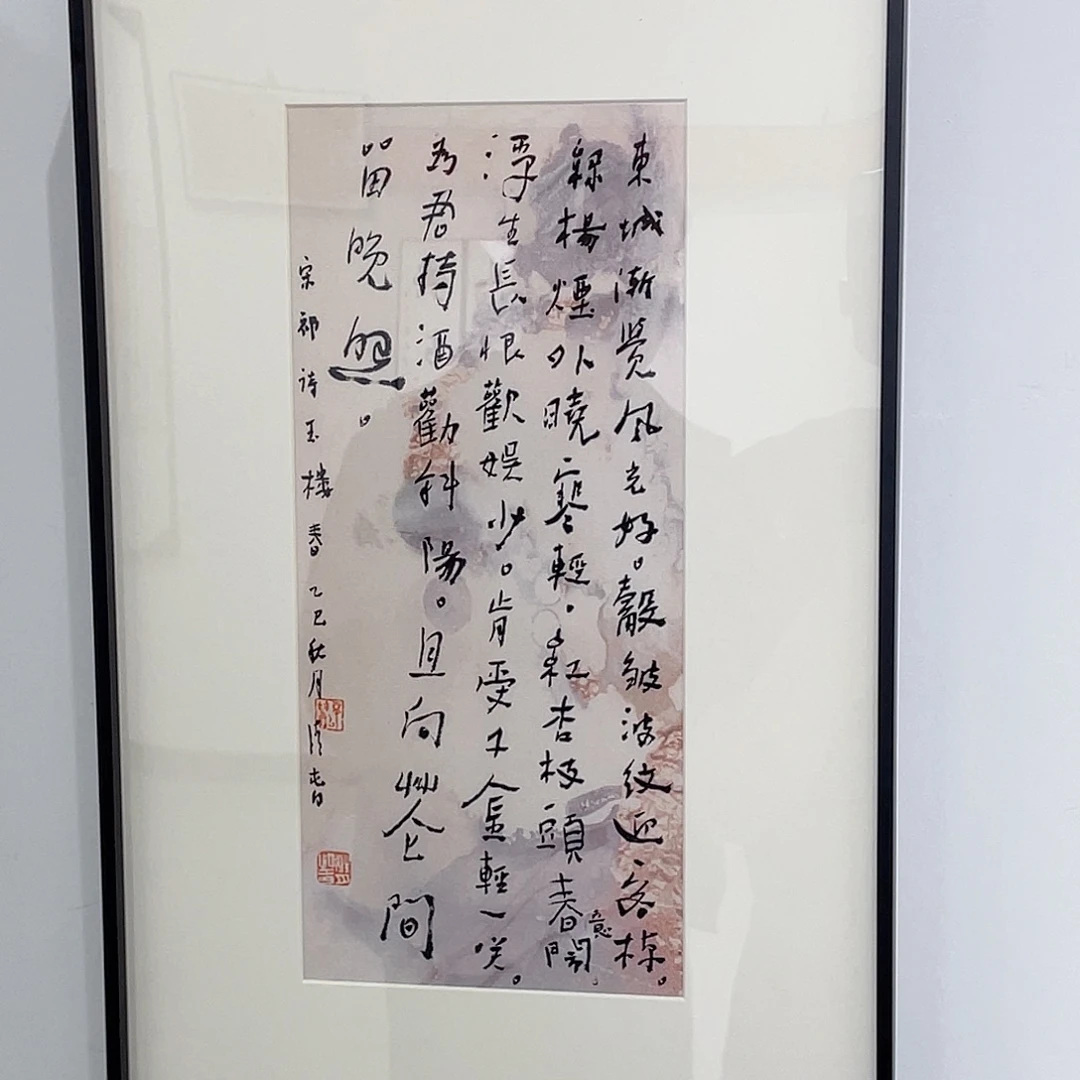 東城漸覺风光好。縠皺波紋迎客棹。
綠楊煙外曉寒輕。紅杏枝頭春意鬧。
浮生長恨歡娛少。肯愛千金輕一咲。
為君持酒勸斜陽。且向花間
留晚照。
宋祁诗玉楼春 乙巳秋月